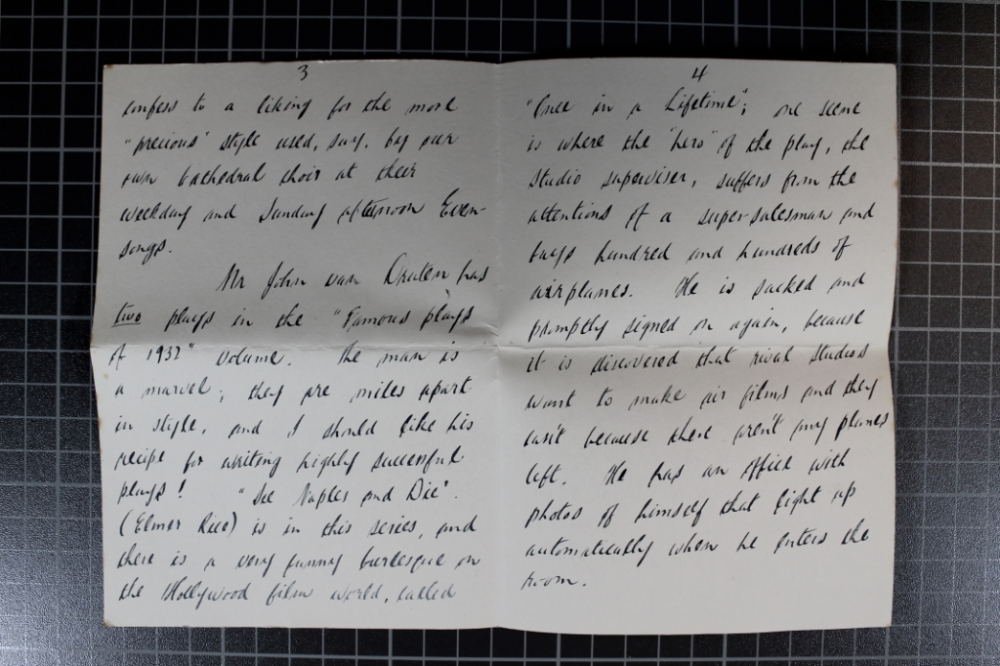 3
confess to a liking for the more
"precious" style used, say, by our
own Cathedral Choir at their
weekday and Sunday afternoon Even-
songs.
Mr John van Druten has
two plays in the "Famous plays
of 1932" volume. The man is
a marvel; they are miles apart
in style, and I should like his
recipe for writing highly successful
plays! "See Naples and Die".
(Elmer Rice) is in this series, and
there is a very funny burlesque on
the Hollywood film world, called
4
"Once in a Lifetime"; one scene
is where the "hero" of the play, the
studio superviser, suffers from the
attentions of a super-salesman and
buys hundred and hundreds of
airplanes. He is sacked and
promptly signed on again, because
it is discovered that rival studios
want to make air films and they
can't because there aren't any planes
left. He has an office with
photos of himself that light up
automatically when he enters the
room.